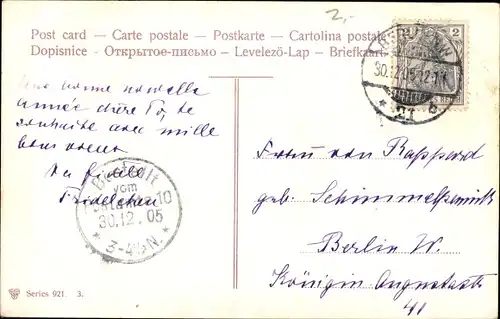 2,-
Post card – Carte postale – Postkarte – Cartolina postale
Dopisnice – Открытое письмо – Levelező-Lap – Briefkaart
2
30.12.05.12-1
* 21 b
bonne nouvelle
année chère
souhaite avec mille
bons voeux
Ta fidèle
Fridelchen
Bestellt
vom
Postamte 10
30.12.05
* 3-4½N. *
Frau von Rappard
geb. Schimmelpfennick
Berlin W.
Königin Augustastr
41
Series 921. 3.